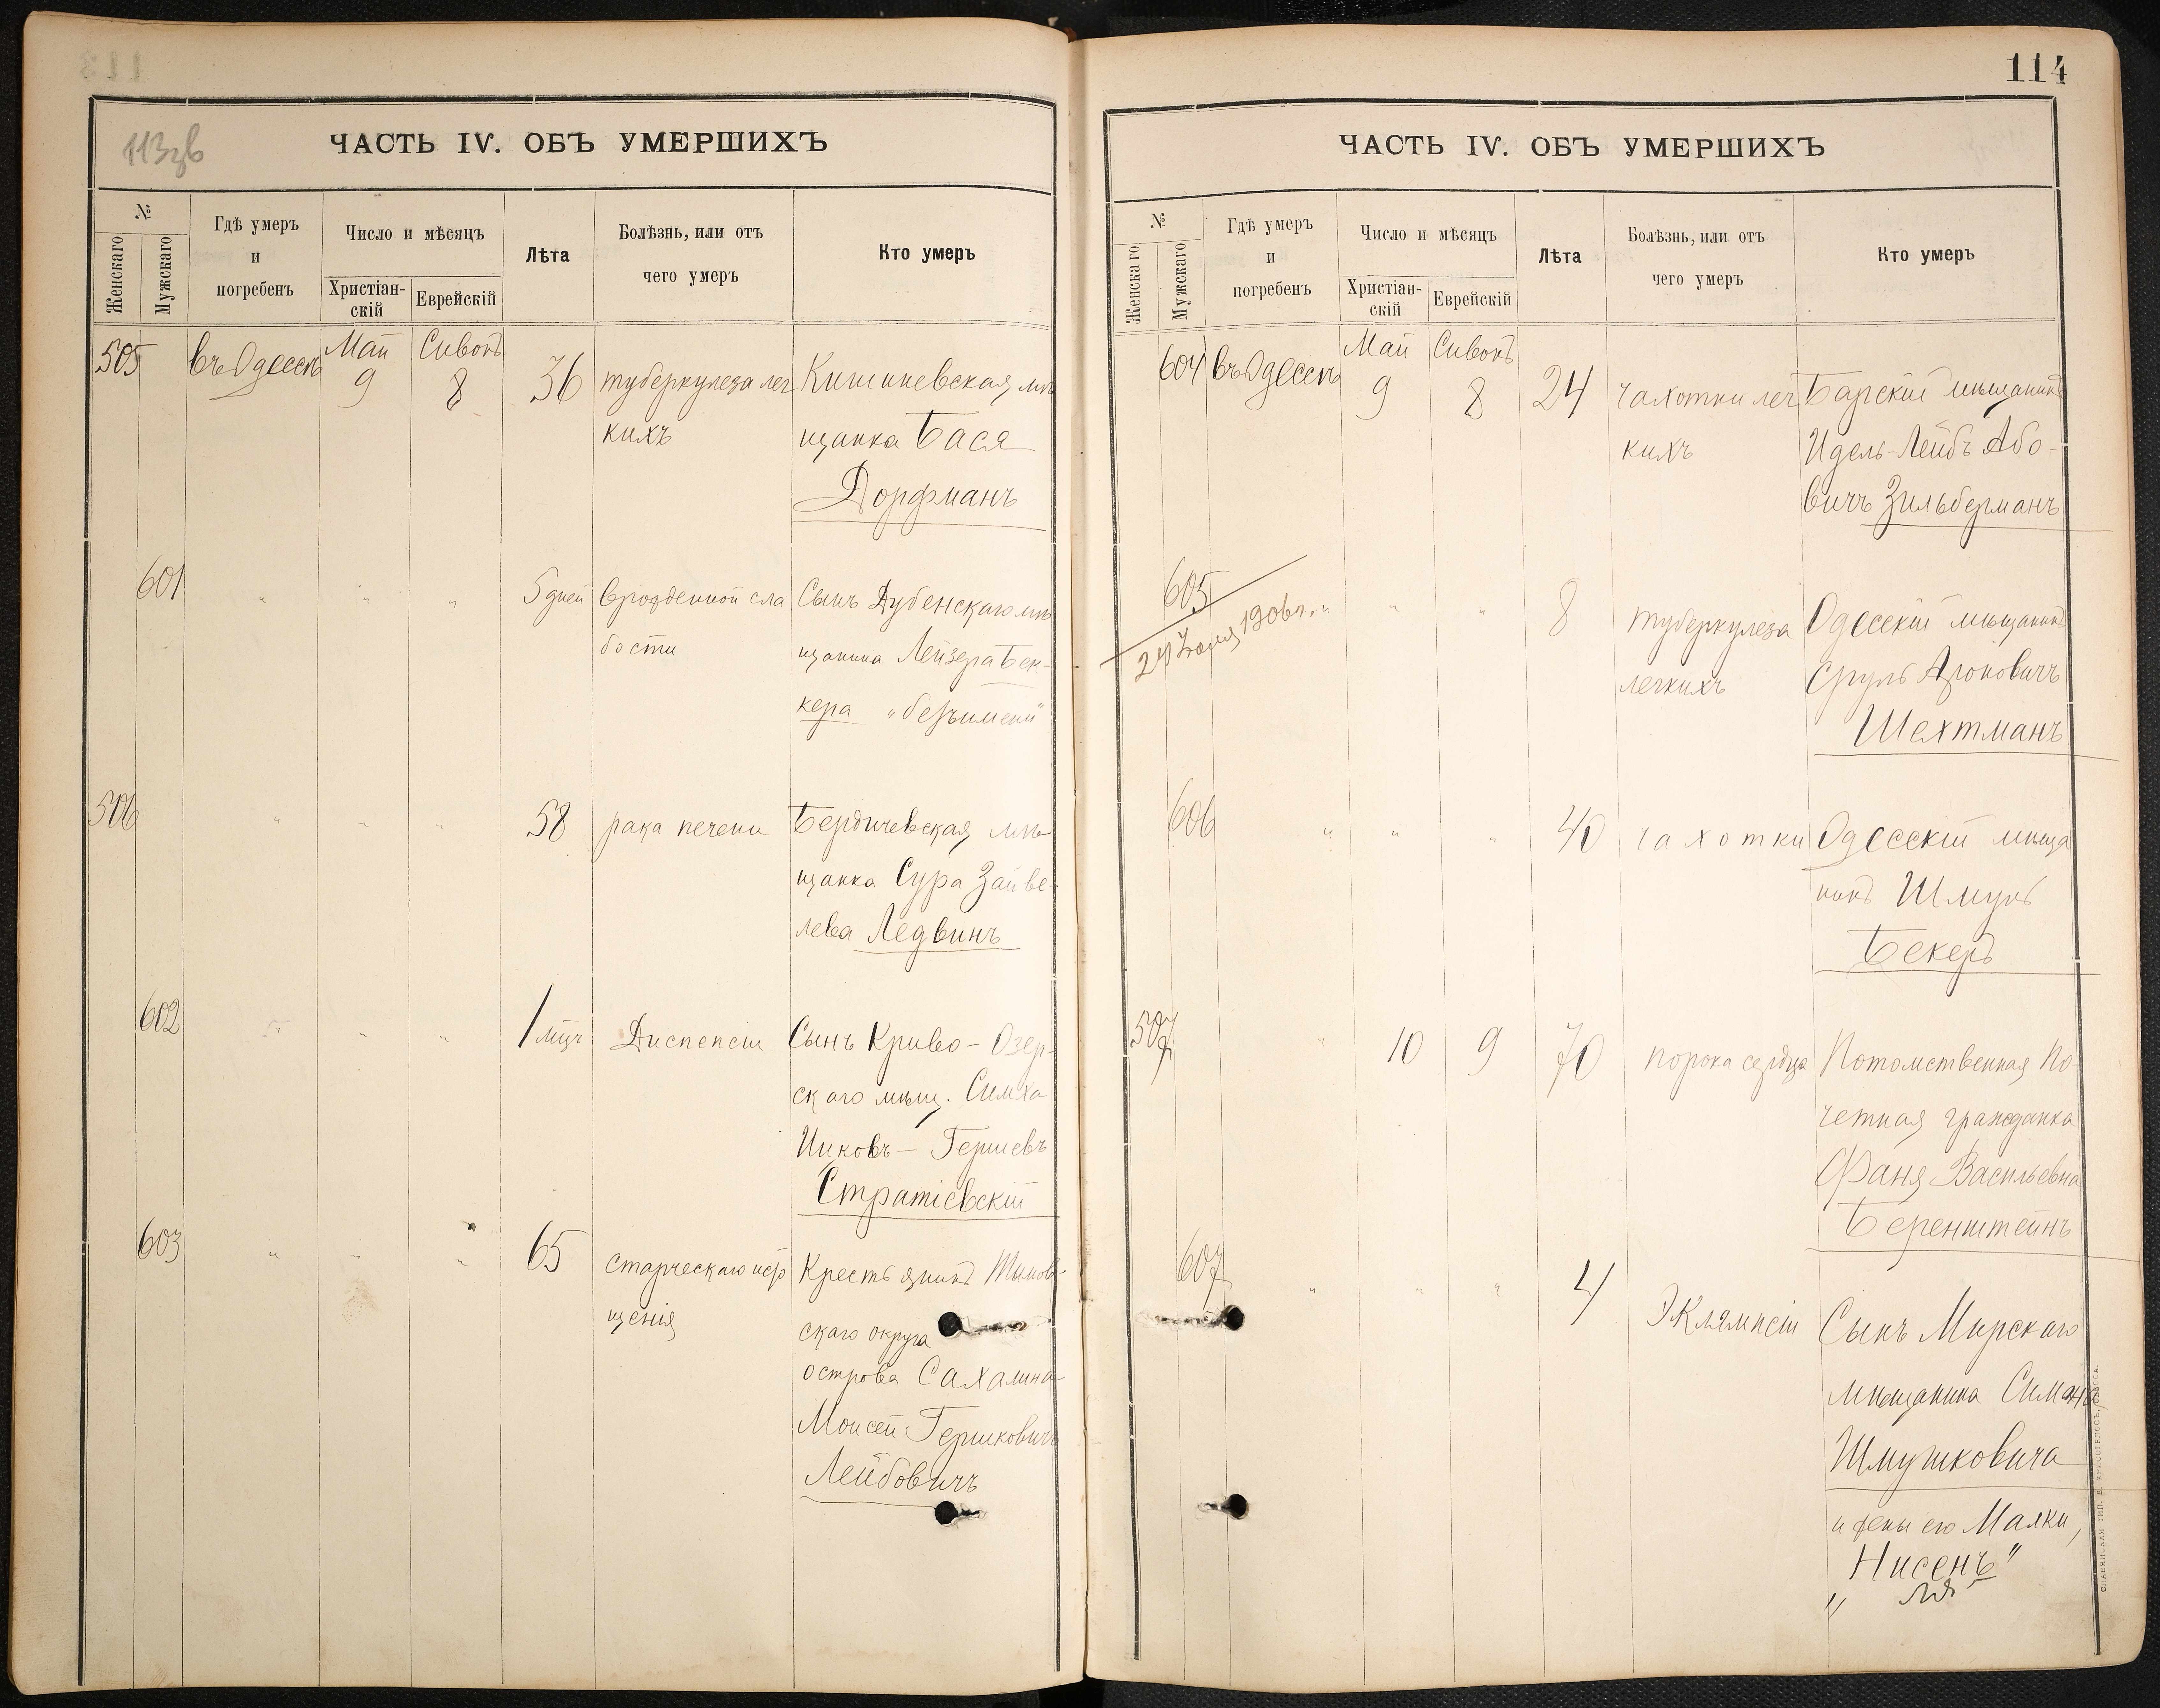 113зв
ЧАСТЬ IV. ОБЪ УМЕРШИХЪ
№
Женскаго
Мужскаго
Гдѣ умеръ
и
погребенъ
Число и мѣсяцъ
Христіан-
скій
Еврейскій
Лѣта
Болѣзнь, или отъ
чего умеръ
Кто умеръ
505 въ Одессѣ Май 9 Сивонъ 8 36 туберкулеза лег
кихъ
Кишиневская мѣ
щанка Бася
Дорфманъ
601 " " " 5 дней врожденной сла
бости
Сынъ Дубенскаго мѣ
щанина Лейзера Бек-
кера "безъимени"
506 " " " 58 рака печени
Бердичевская мѣ
щанка Сура Зайве-
лева Ледвинъ
602 " " " 1 мѣс Диспепсіи
Сынъ Криво-Озер-
скаго мѣщ. Симха
Ициковъ-Гершевъ
Стратіевскій
603 " " " 65 старческаго исто
щенія
Крестьянинъ Тымов-
скаго округа
острова Сахалина
Моисей Гершковичъ
Лейбовичъ
114
ЧАСТЬ IV. ОБЪ УМЕРШИХЪ
№
Женскаго
Мужскаго
Гдѣ умеръ
и
погребенъ
Число и мѣсяцъ
Христіан-
скій
Еврейскій
Лѣта
Болѣзнь, или отъ
чего умеръ
Кто умеръ
604 въ Одессѣ Май 9 Сивонъ 8 24 чахотки лег
кихъ
Барскій мѣщанинъ
Идель-Лейбъ Або-
вичъ Зильберманъ
605 " " " 8 туберкулеза
легкихъ
24 Іюля 1906 г.
Одесскій мѣщанинъ
Сруль Ароновичъ
Шехтманъ
606 " " " 40 чахотки
Одесскій мѣща
нинъ Шмуль
Бекеръ
507 " 10 9 70 порока сердца
Потомственная По-
четная гражданка
Фаня Васильевна
Беренштейнъ
607 " " " 4 Эклямпсіи
Сынъ Мирскаго
мѣщанина Симона
Шмушковича
и жены его Малки,
"Нисенъ"
СЛАВЯНСКАЯ ТИП. Е. ХРИСОГЕЛОСЪ, ОДЕССА.